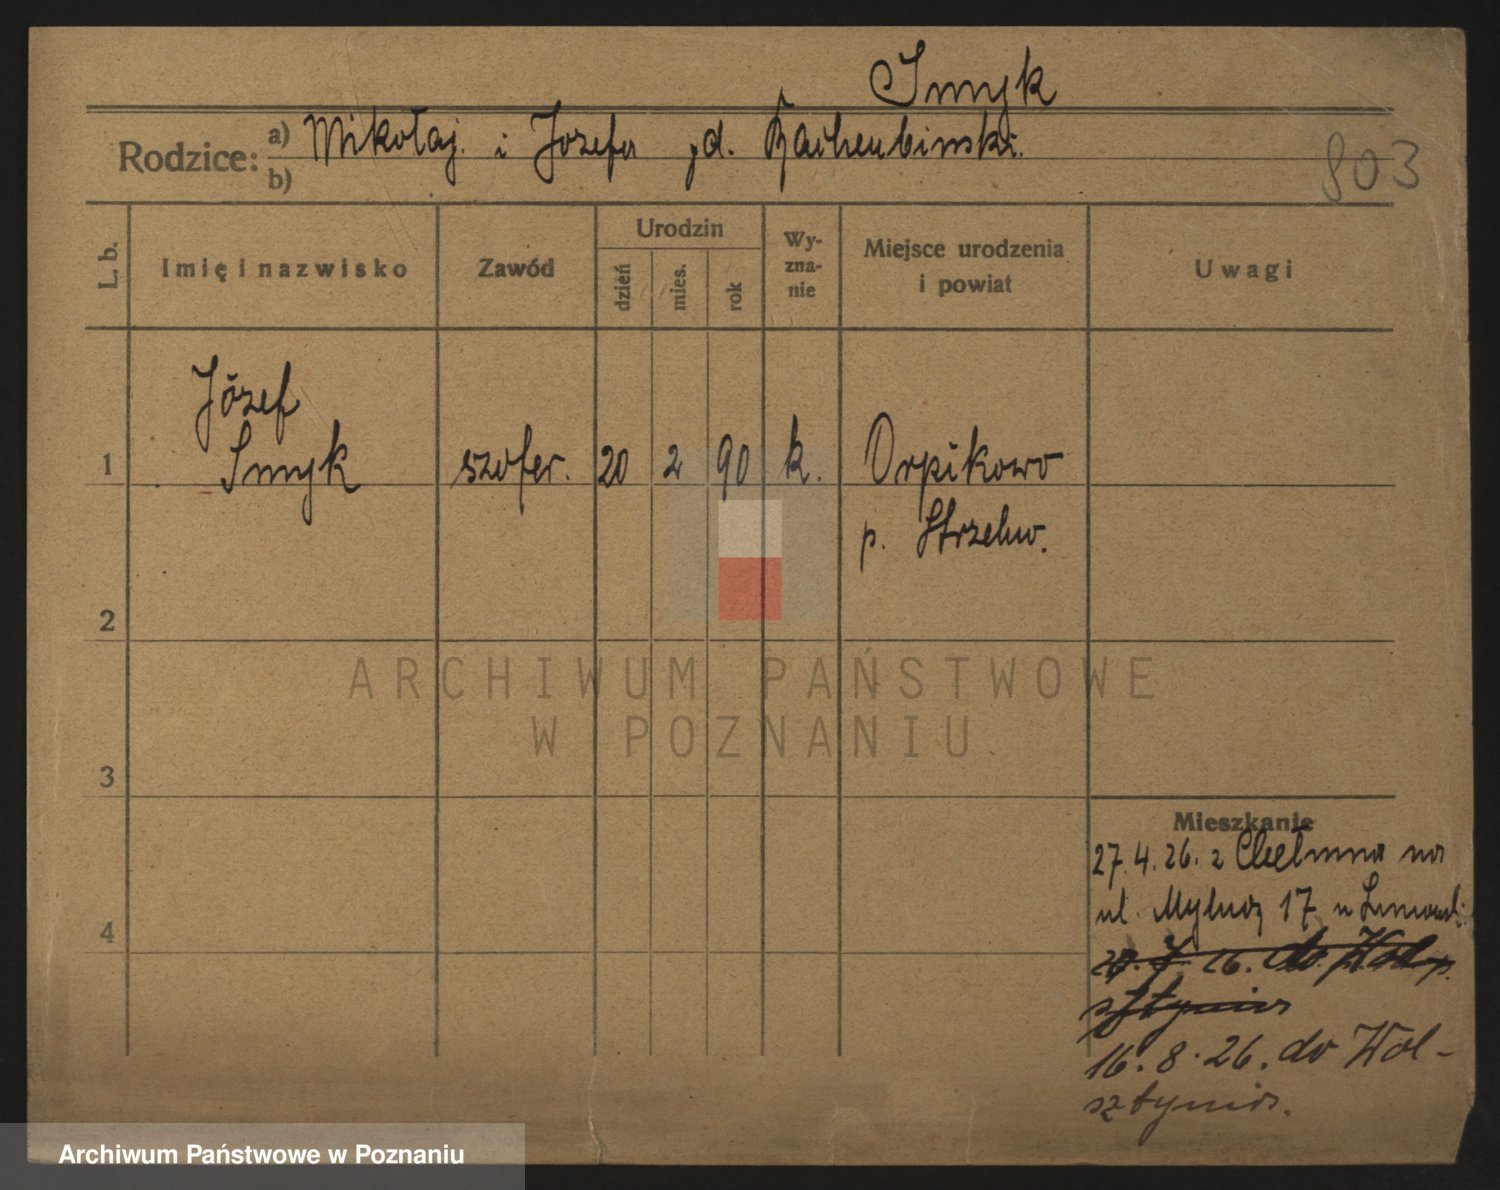 Smyk
Rodzice: a) Mikołaj i Józefa
b)
803
L. b.
Imię i nazwisko
Zawód
Urodzin
dzień
mies.
rok
Wy-
zna-
nie
Miejsce urodzenia
i powiat
Uwagi
Józef
1 Smyk szofer. 20 2 90 k. Orpikowo
p. Strzelno.
2
ARCHIWUM PAŃSTWOWE
W POZNANIU
3
Mieszkanie
27.4.26. z Chełmna na
ul. Mylna 17 u
4
26. do Wol
sztynia
16.8.26. do Wol-
sztynia.
Archiwum Państwowe w Poznaniu